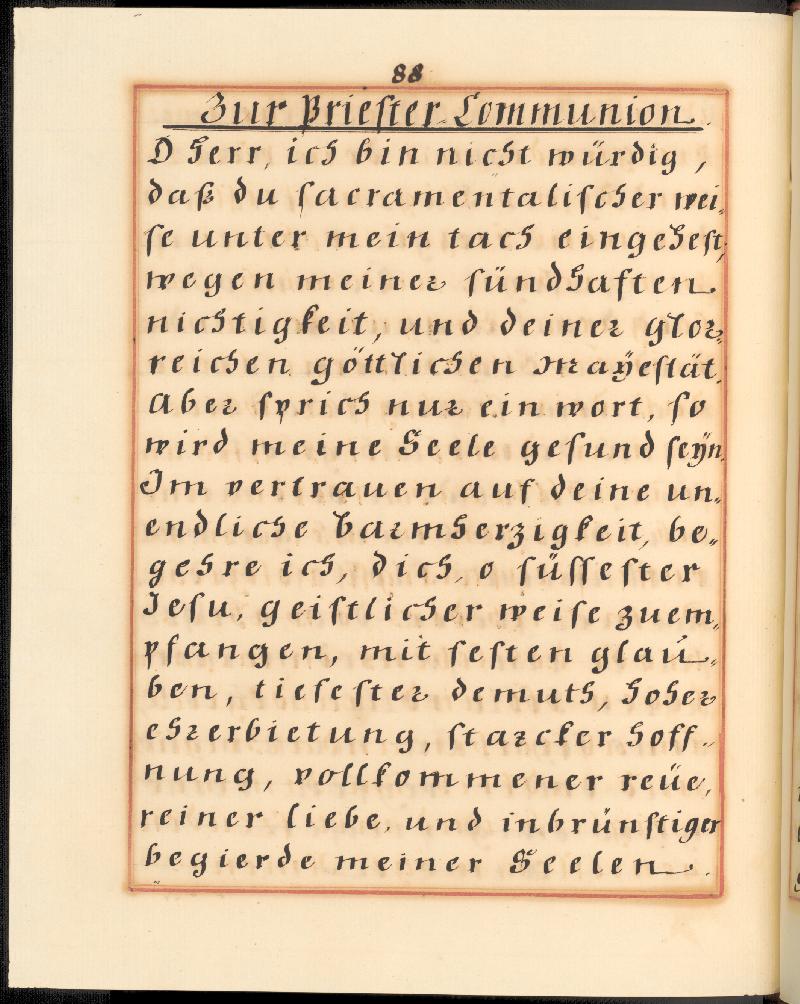 88
Zur Priester Communion.
O Herr, ich bin nicht würdig,
daß du sacramentalischer wei„
se unter mein tach eingehest,
wegen meiner sündhaften
nichtigkeit, und deiner glor„
reichen göttlichen Mayëstät.
Aber sprich nur ein wort, so
wird meine Seele gesund seÿn.
Im vertrauen auf deine un„
endliche barmherzigkeit, be„
gehre ich, dich, o süssester
Jesu, geistlicher weise zuem„
pfangen, mit festen glau„
ben, tiefester demuth, hoher
ehrerbietung, starcker hoff„
nung, vollkommener reüe,
reiner liebe, und inbrünstiger
begierde meiner Seelen.